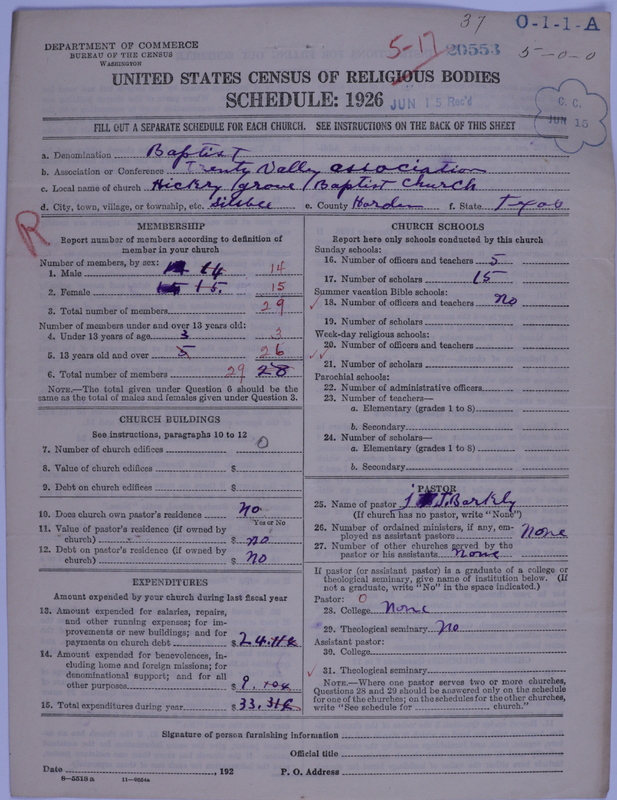 37 O-1-1-A
DEPARTMENT OF COMMERCE
BUREAU OF THE CENSUS
WASHINGTON
5-17 20553 5-0-0
UNITED STATES CENSUS OF RELIGIOUS BODIES
SCHEDULE: 1926
JUN 15 Rec'd
C. C.
JUN 15
FILL OUT A SEPARATE SCHEDULE FOR EACH CHURCH. SEE INSTRUCTIONS ON THE BACK OF THIS SHEET
a. Denomination Baptist
b. Association or Conference Trenty Valley association
c. Local name of church Hickry grove Baptist Church
d. City, town, village, or township, etc. Silsbee e. County Harden f. State Texas
R
MEMBERSHIP
Report number of members according to definition of
member in your church
Number of members, by sex:
1. Male 14 14
2. Female 15 15
3. Total number of members 29
Number of members under and over 13 years old:
4. Under 13 years of age 3 3
5. 13 years old and over 5 26
6. Total number of members 29 28
NOTE.—The total given under Question 6 should be the
same as the total of males and females given under Question 3.
CHURCH BUILDINGS
See instructions, paragraphs 10 to 12
7. Number of church edifices 0
8. Value of church edifices $
9. Debt on church edifices $
10. Does church own pastor's residence no
Yes or No
11. Value of pastor's residence (if owned by
church) $ no
12. Debt on pastor's residence (if owned by
church) $ No
EXPENDITURES
Amount expended by your church during last fiscal year
13. Amount expended for salaries, repairs,
and other running expenses; for im-
provements or new buildings; and for
payments on church debt $
14. Amount expended for benevolences, in-
cluding home and foreign missions; for
denominational support; and for all
other purposes $
15. Total expenditures during year $
CHURCH SCHOOLS
Report here only schools conducted by this church
Sunday schools:
16. Number of officers and teachers 5
17. Number of scholars 15
Summer vacation Bible schools:
18. Number of officers and teachers no
19. Number of scholars
Week-day religious schools:
20. Number of officers and teachers
21. Number of scholars
Parochial schools:
22. Number of administrative officers
23. Number of teachers—
a. Elementary (grades 1 to 8)
b. Secondary
24. Number of scholars—
a. Elementary (grades 1 to 8)
b. Secondary
PASTOR
25. Name of pastor J. Barkly
(If church has no pastor, write "None")
26. Number of ordained ministers, if any, em-
ployed as assistant pastors None
27. Number of other churches served by the
pastor or his assistants none
If pastor (or assistant pastor) is a graduate of a college or
theological seminary, give name of institution below. (If
not a graduate, write "No" in the space indicated.)
Pastor: 0
28. College None
29. Theological seminary No
Assistant pastor:
30. College
31. Theological seminary
NOTE.—Where one pastor serves two or more churches,
Questions 28 and 29 should be answered only on the schedule
for one of the churches; on the schedules for the other churches,
write "See schedule for church."
Signature of person furnishing information
Official title
Date , 192 P. O. Address